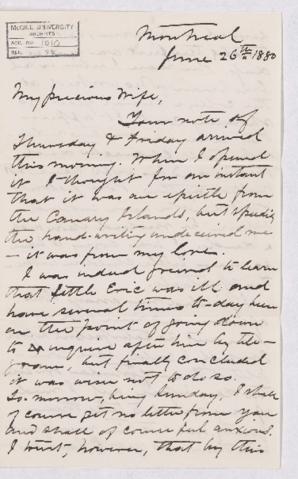 McGILL UNIVERSITY
ARCHIVES
ACC. NO. 1010
REF.
Montreal
June 26th 1880
My precious Wife,
Your note of
Thursday & Friday arrived
this morning. When I opened
it I thought for an instant
that it was an epistle from
the Canary Islands, but speedily
the hand-writing undeceived me
— it was from my love.
I was indeed grieved to learn
that little Eric was ill and
have several times to-day been
on the point of going down
to inquire after him by tele-
gram, but finally concluded
it was not to do so.
To-morrow, being Sunday, I shall
of course get no letter from you
and shall of course feel anxious.
I trust, however, that by this